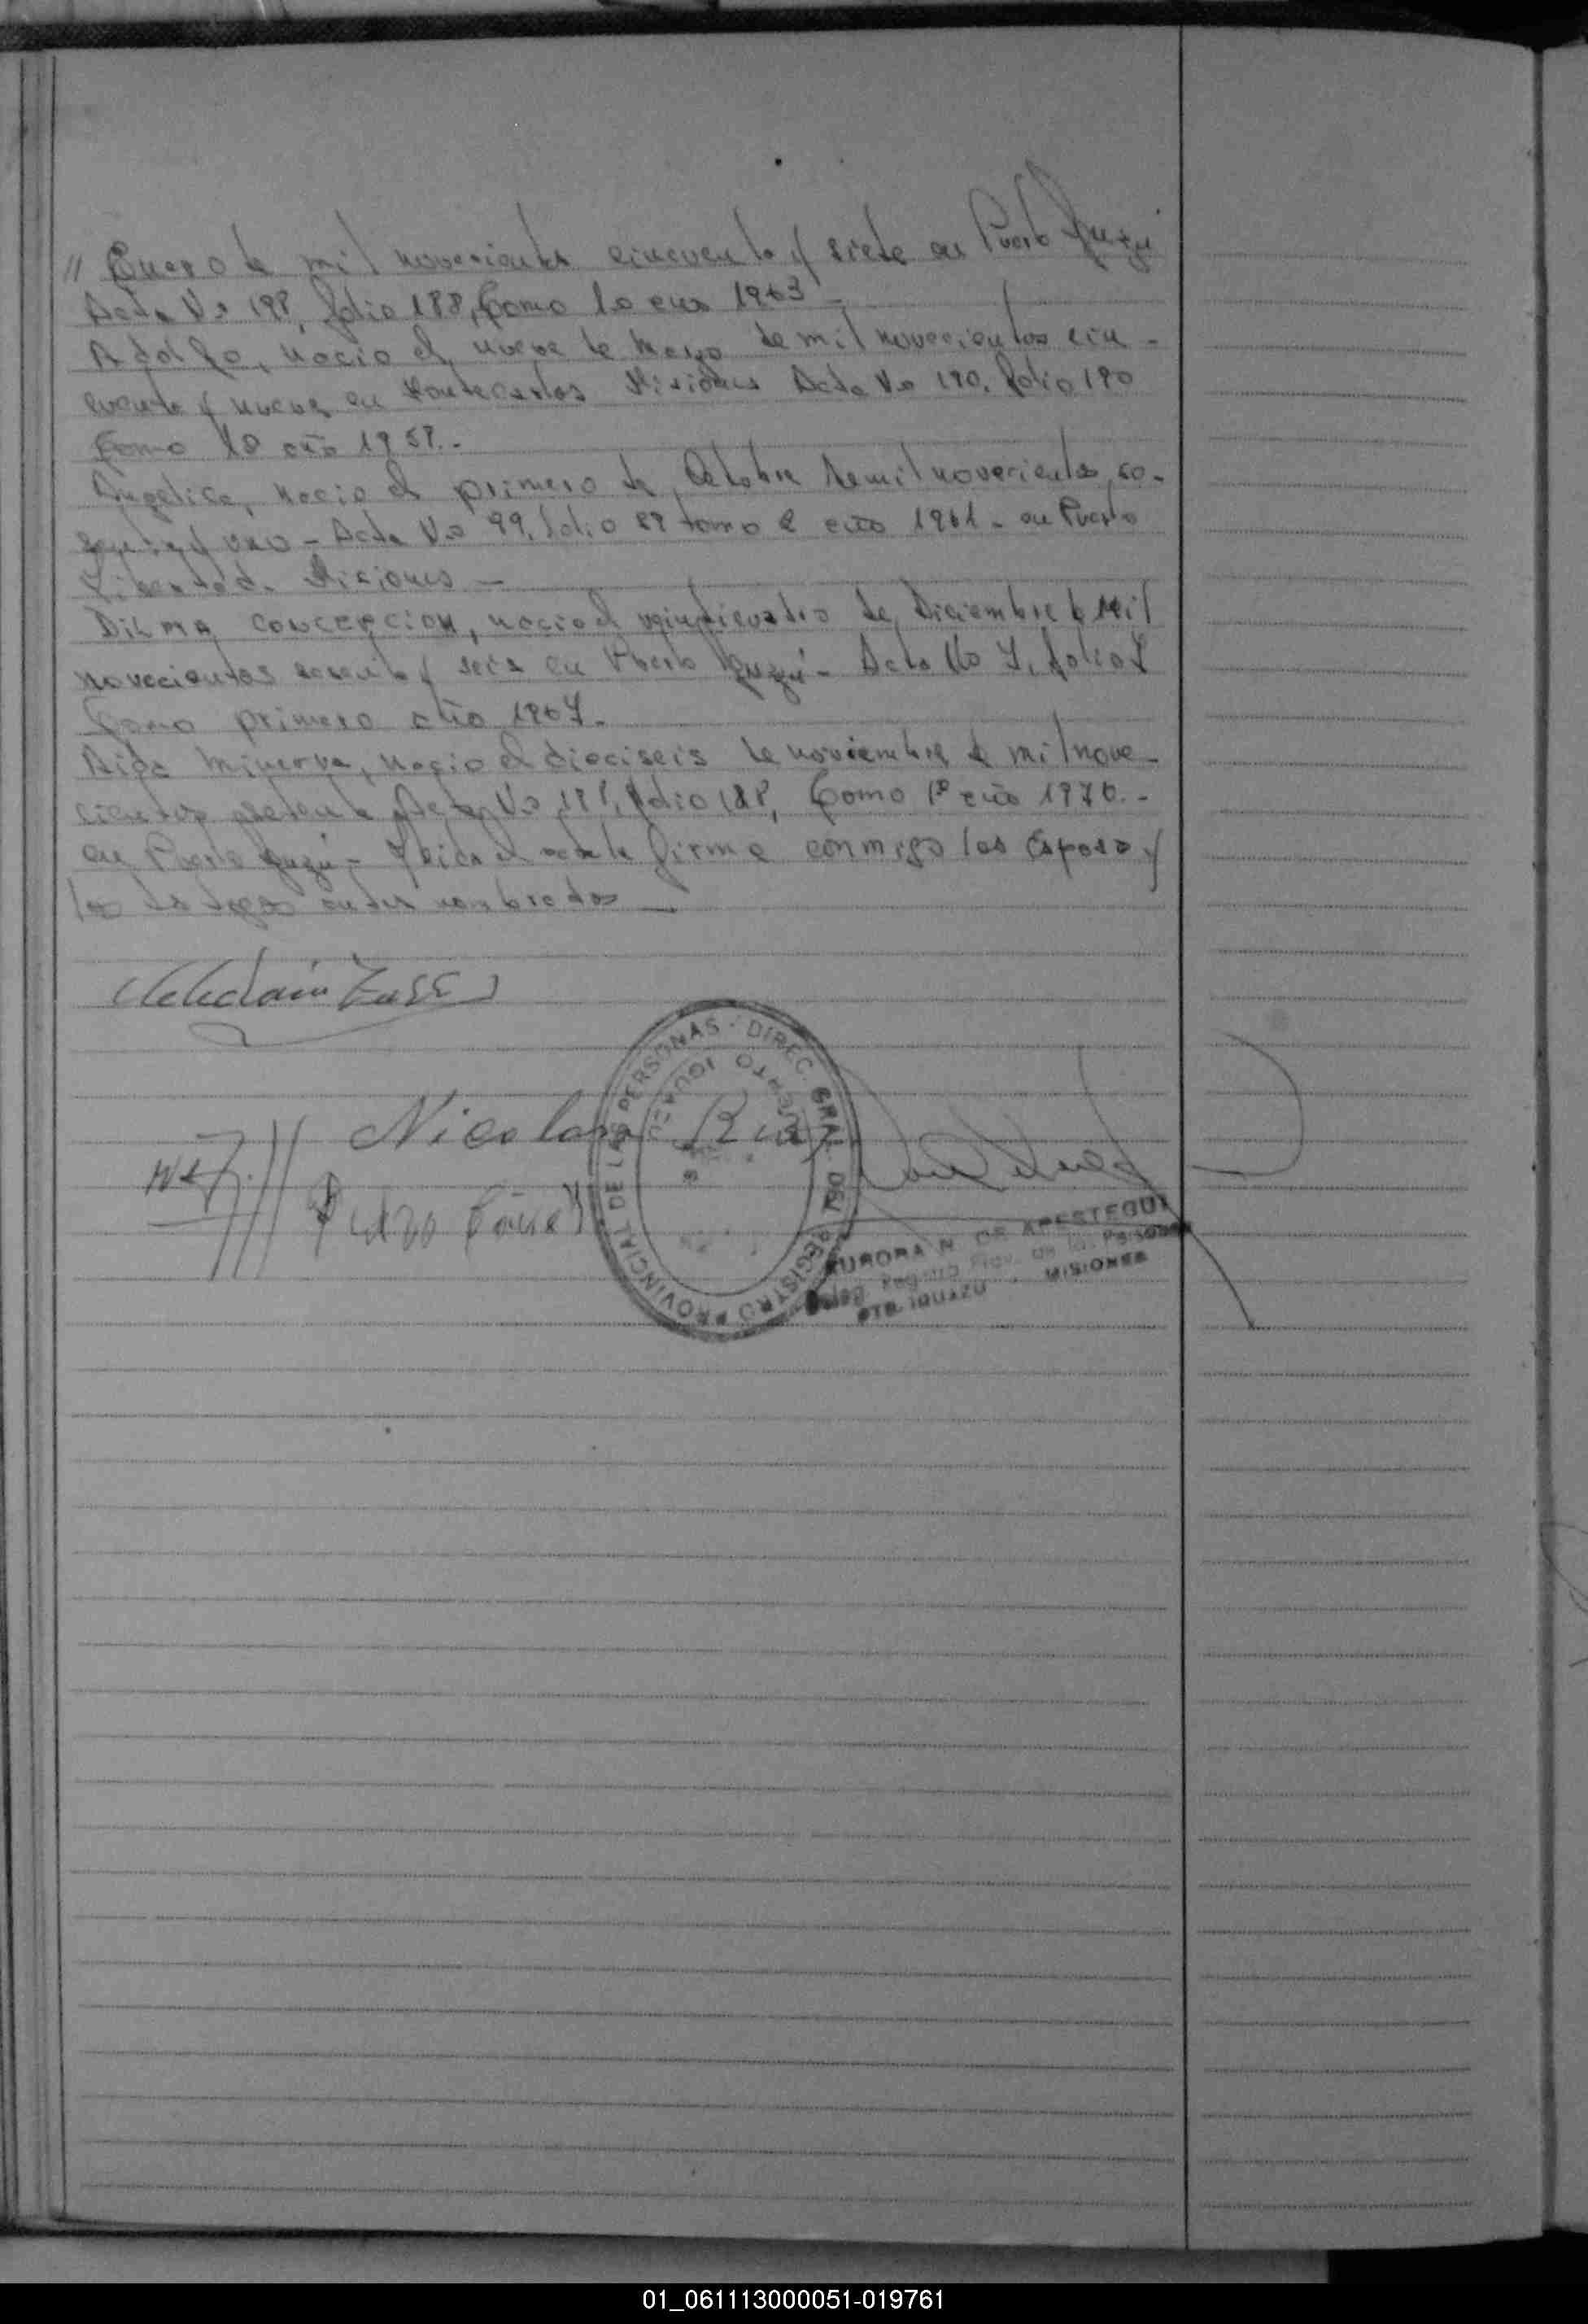 // Enero de mil novecientos cincuenta y siete en Puerto Iguazu
Acta No 198, folio 188, Tomo 1o año 1963 -
Adolfo, nacio el nueve de Mayo de mil novecientos cin-
cuenta y nueve en Montecarlos Misiones Acta No 190, folio 190
Tomo 1o año 1959.-
Angelica, nacio el primero de Octubre de mil novecientos se-
senta y uno - Acta No 99, folio 99 tomo 2 año 1961 - en Puerto
Libertad. Misiones -
DILMA CONCEPCION, nacio el veinticuatro de Diciembre de Mil
novecientos sesenta y seis en Puerto Iguazú - Acta No 7, folio 7
Tomo primero año 1967.
Aida Minerva, nacio el dieciseis de noviembre de mil nove-
cientos setenta Acta No folio Tomo 1º año 1970.-
en Puerto Iguazú - Leida el acta la firma conmigo los Esposos y
los testigos antes nombrados -
Nicolasa Ruiz
DIREC. GRAL. DEL REGISTRO PROVINCIAL DE LAS PERSONAS
PUERTO IGUAZU
AURORA N. DE APESTEGUI
Deleg. Registro Prov. de las Personas
PTO. IGUAZU - MISIONES
01_061113000051-019761